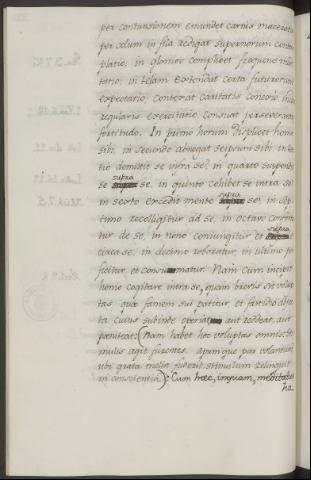 per contunsionem emundet carnis maceratio
per colum in fila redigat supernorum contem
platio, in glomos complicet frequens medi
tatio, in telam extendat certa futurorum
expectatio, contexat caritatis concors,
regularis exercitatio, consuat perseverantiæ
fortitudo. In primo horum displicet homo
sibi, in secundo abnegat se ipsum sibi, in ter
tio demittit se infra se, in quarto suspendit
se supra se, in quinto cohibet se intra se,
in sexto excedit mente supra se, in sep
timo recolligitur ad se, in octavo conform
tur de se, in nono coniungitur et supra
extra se, in decimo roboratur, in ultimo per
ficitur et consummatur. Nam cum incipit
homo cogitare intra se, quam brevis sit volup
tas quæ famem sui patitur, et fastidio abru
ta cuius subinde operiat aut tædeat, aut
pæniteat: (nam habet hoc voluptas omnis, sti
mulis agit furentes, apumque par volantium
ubi grata mella fuderit, stimulum relinquit
in conscientia): Cum hæc, inquam, meditatus